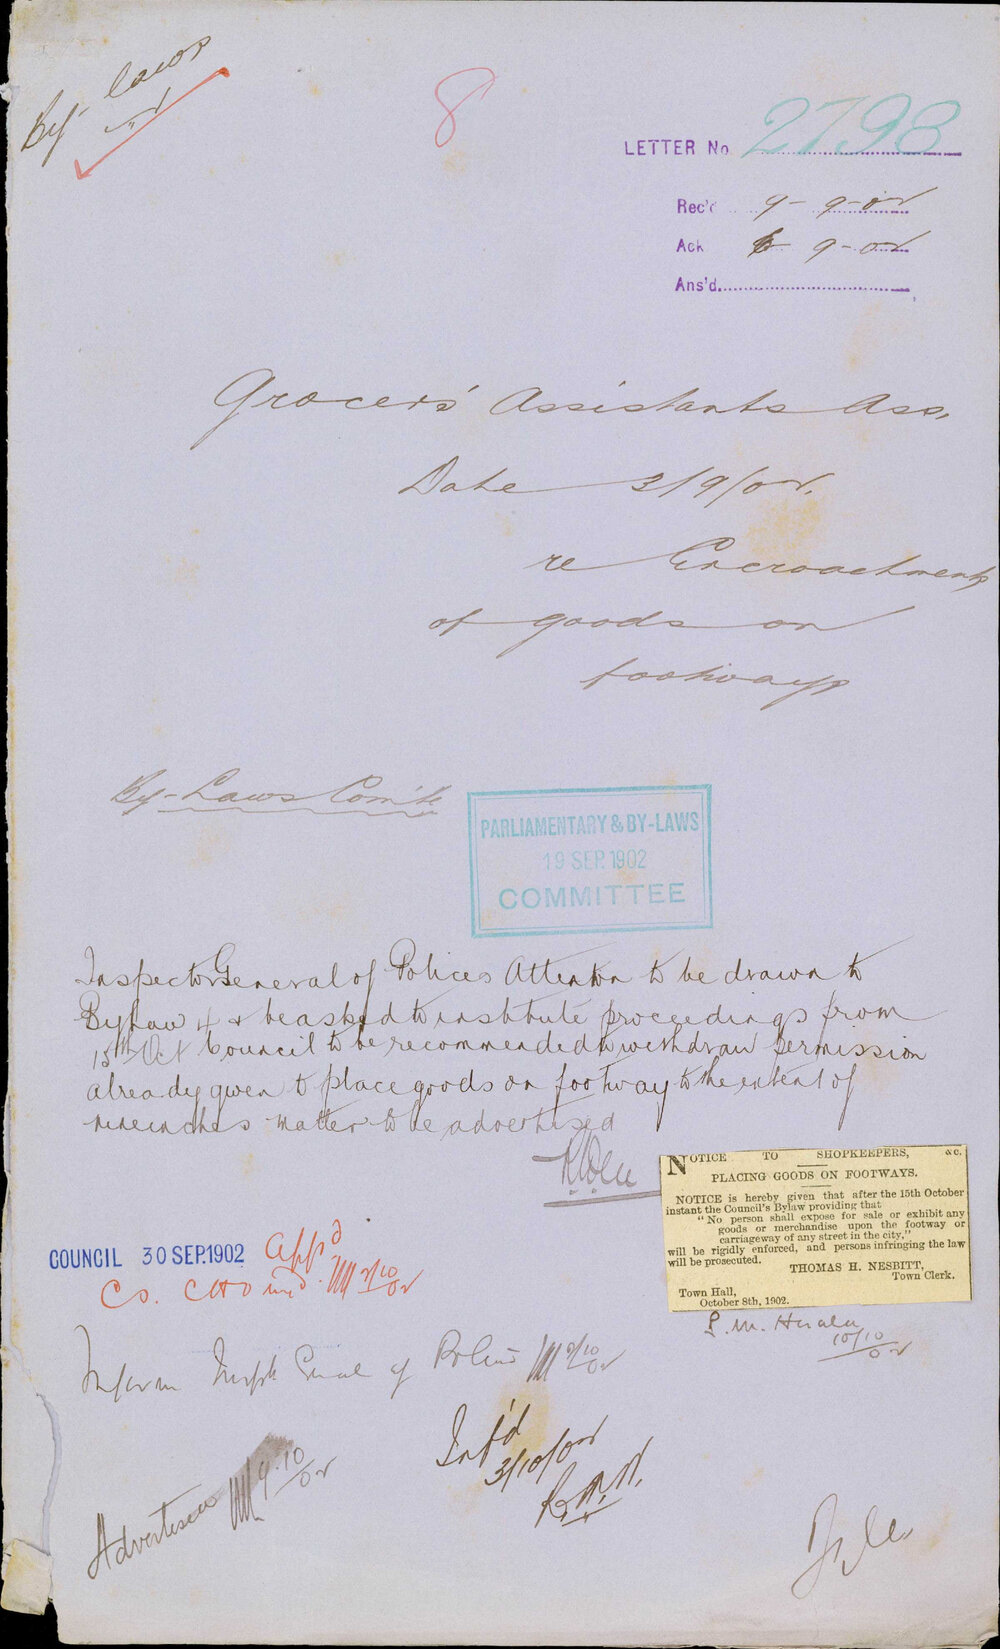 By-laws
8
LETTER No. 2798
Rec'd 9-9-02
Ack 9-02
Ans'd
Grocers' Assistants Ass.
Date 3/9/02.
re Encroachments
of goods on
footways
By-Laws Comte
PARLIAMENTARY & BY-LAWS
19 SEP. 1902
COMMITTEE
Inspector General of Polices Attention to be drawn to
Bylaw 4 & be asked to institute proceedings from
15th Oct Council to be recommended to withdraw permission
already given to place goods on footway to the extent of
nine inches matter to be advertised
NOTICE TO SHOPKEEPERS, &c.
PLACING GOODS ON FOOTWAYS.
NOTICE is hereby given that after the 15th October
instant the Council's Bylaw providing that
"No person shall expose for sale or exhibit any
goods or merchandise upon the footway or
carriageway of any street in the city,"
will be rigidly enforced, and persons infringing the law
will be prosecuted.
THOMAS H. NESBITT,
Town Clerk.
Town Hall,
October 8th, 1902.
S. M. Herald
10/10/02
COUNCIL 30 SEP. 1902 App'd
2/10/02
Inform Insp Genl of Police 2/10/02
Inf'd
3/10/02
Advertised 9.10/02
File